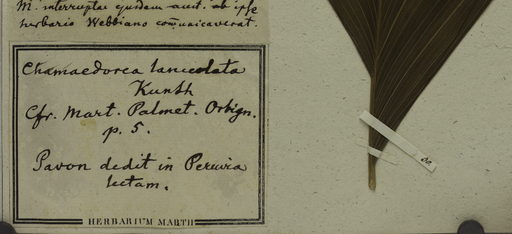 M. interruptae quidem aut. ab ipse
herbario Webbiano com̃unicaverat.
Chamaedorea lanceolata
Kunth
Cfr. Mart. Palmet. Orbign.
p. 5.
Pavon dedit in Peruvia
lectam.
HERBARIUM MARTII